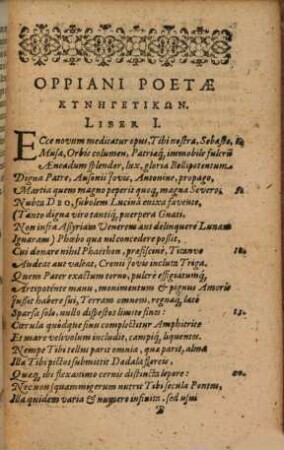 OPPIANI POETÆ
ΚΥΝΗΓΕΤΙΚΩΝ.
LIBER I.
ECce novum meditatur opus, Tibi nostra, Sebaste,
Musa, Orbis columen, Patriæq́; immobile fulcrũ
Æneadum splendor, lux, gloria Bellipotentum
Digna Patre, Ausonii Jovis, Antonine, propago,
Martia quem magno peperit quoq́; magna Severo, 5.
Nupta DEO, subolem Lucinâ enixa favente,
(Tanto digna viro tantiq́; puerpera Gnati.
Non infra Assyriam Venerem aut delinquere Lunam
Ignaram) Phœbo qua nil concedere possit,
Cui donare nihil Phaëthon, præfiscine, Titanve 10
Audeat aut valeat, Crenii Jovis inclyta Triga.
Quem Pater exactum torno, pulcrè effigiatumq́;
Artipotente manu, monimentum & pignus Amoris
Jussit habere sui, Terram omnem, regnaq́; latè
Sparsa solo, nullo dispestos limite fines: 15.
Cærula quódque sinu complectitur Amphitrite
Et mare velivolum includit, campiq́; liquentes.
Nempe Tibi tellus parit omnia, quæ parit, alma
Illa Tibi pictos submittit Dædala flores,
Queq́; ibi flexanimo cernis distincta lepore: 20.
Nec non squammigerum nutrit Tibi secula Pontus,
Illa quidem varia & numero infinita, sed usui
B